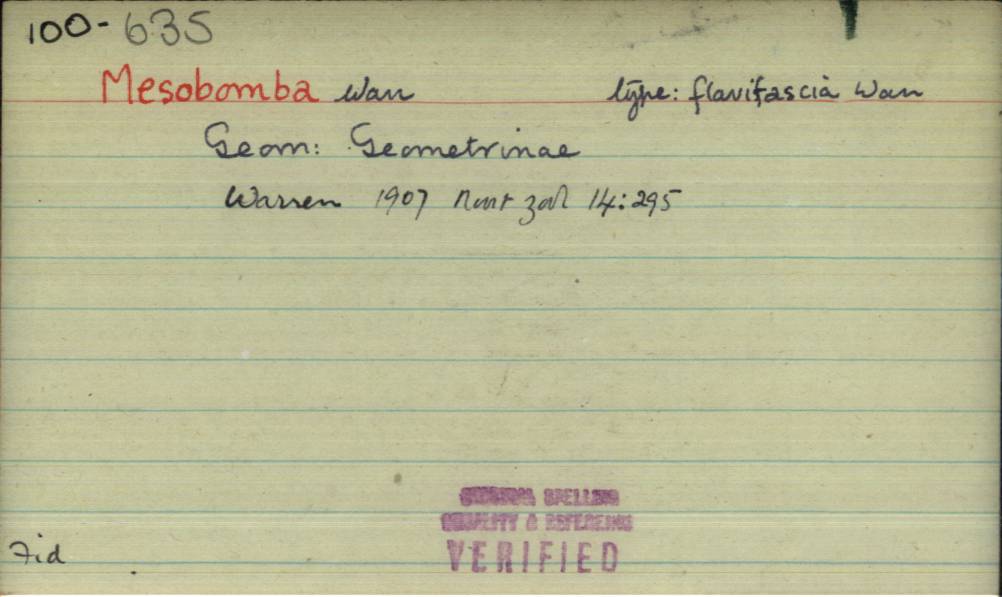 100-635
Mesobomba Warr type: flavifascia Warr
Geom: Geometrinae
Warren 1907 Novit zool 14:295
SPELLING
& REFERENCE
VERIFIED
Fid